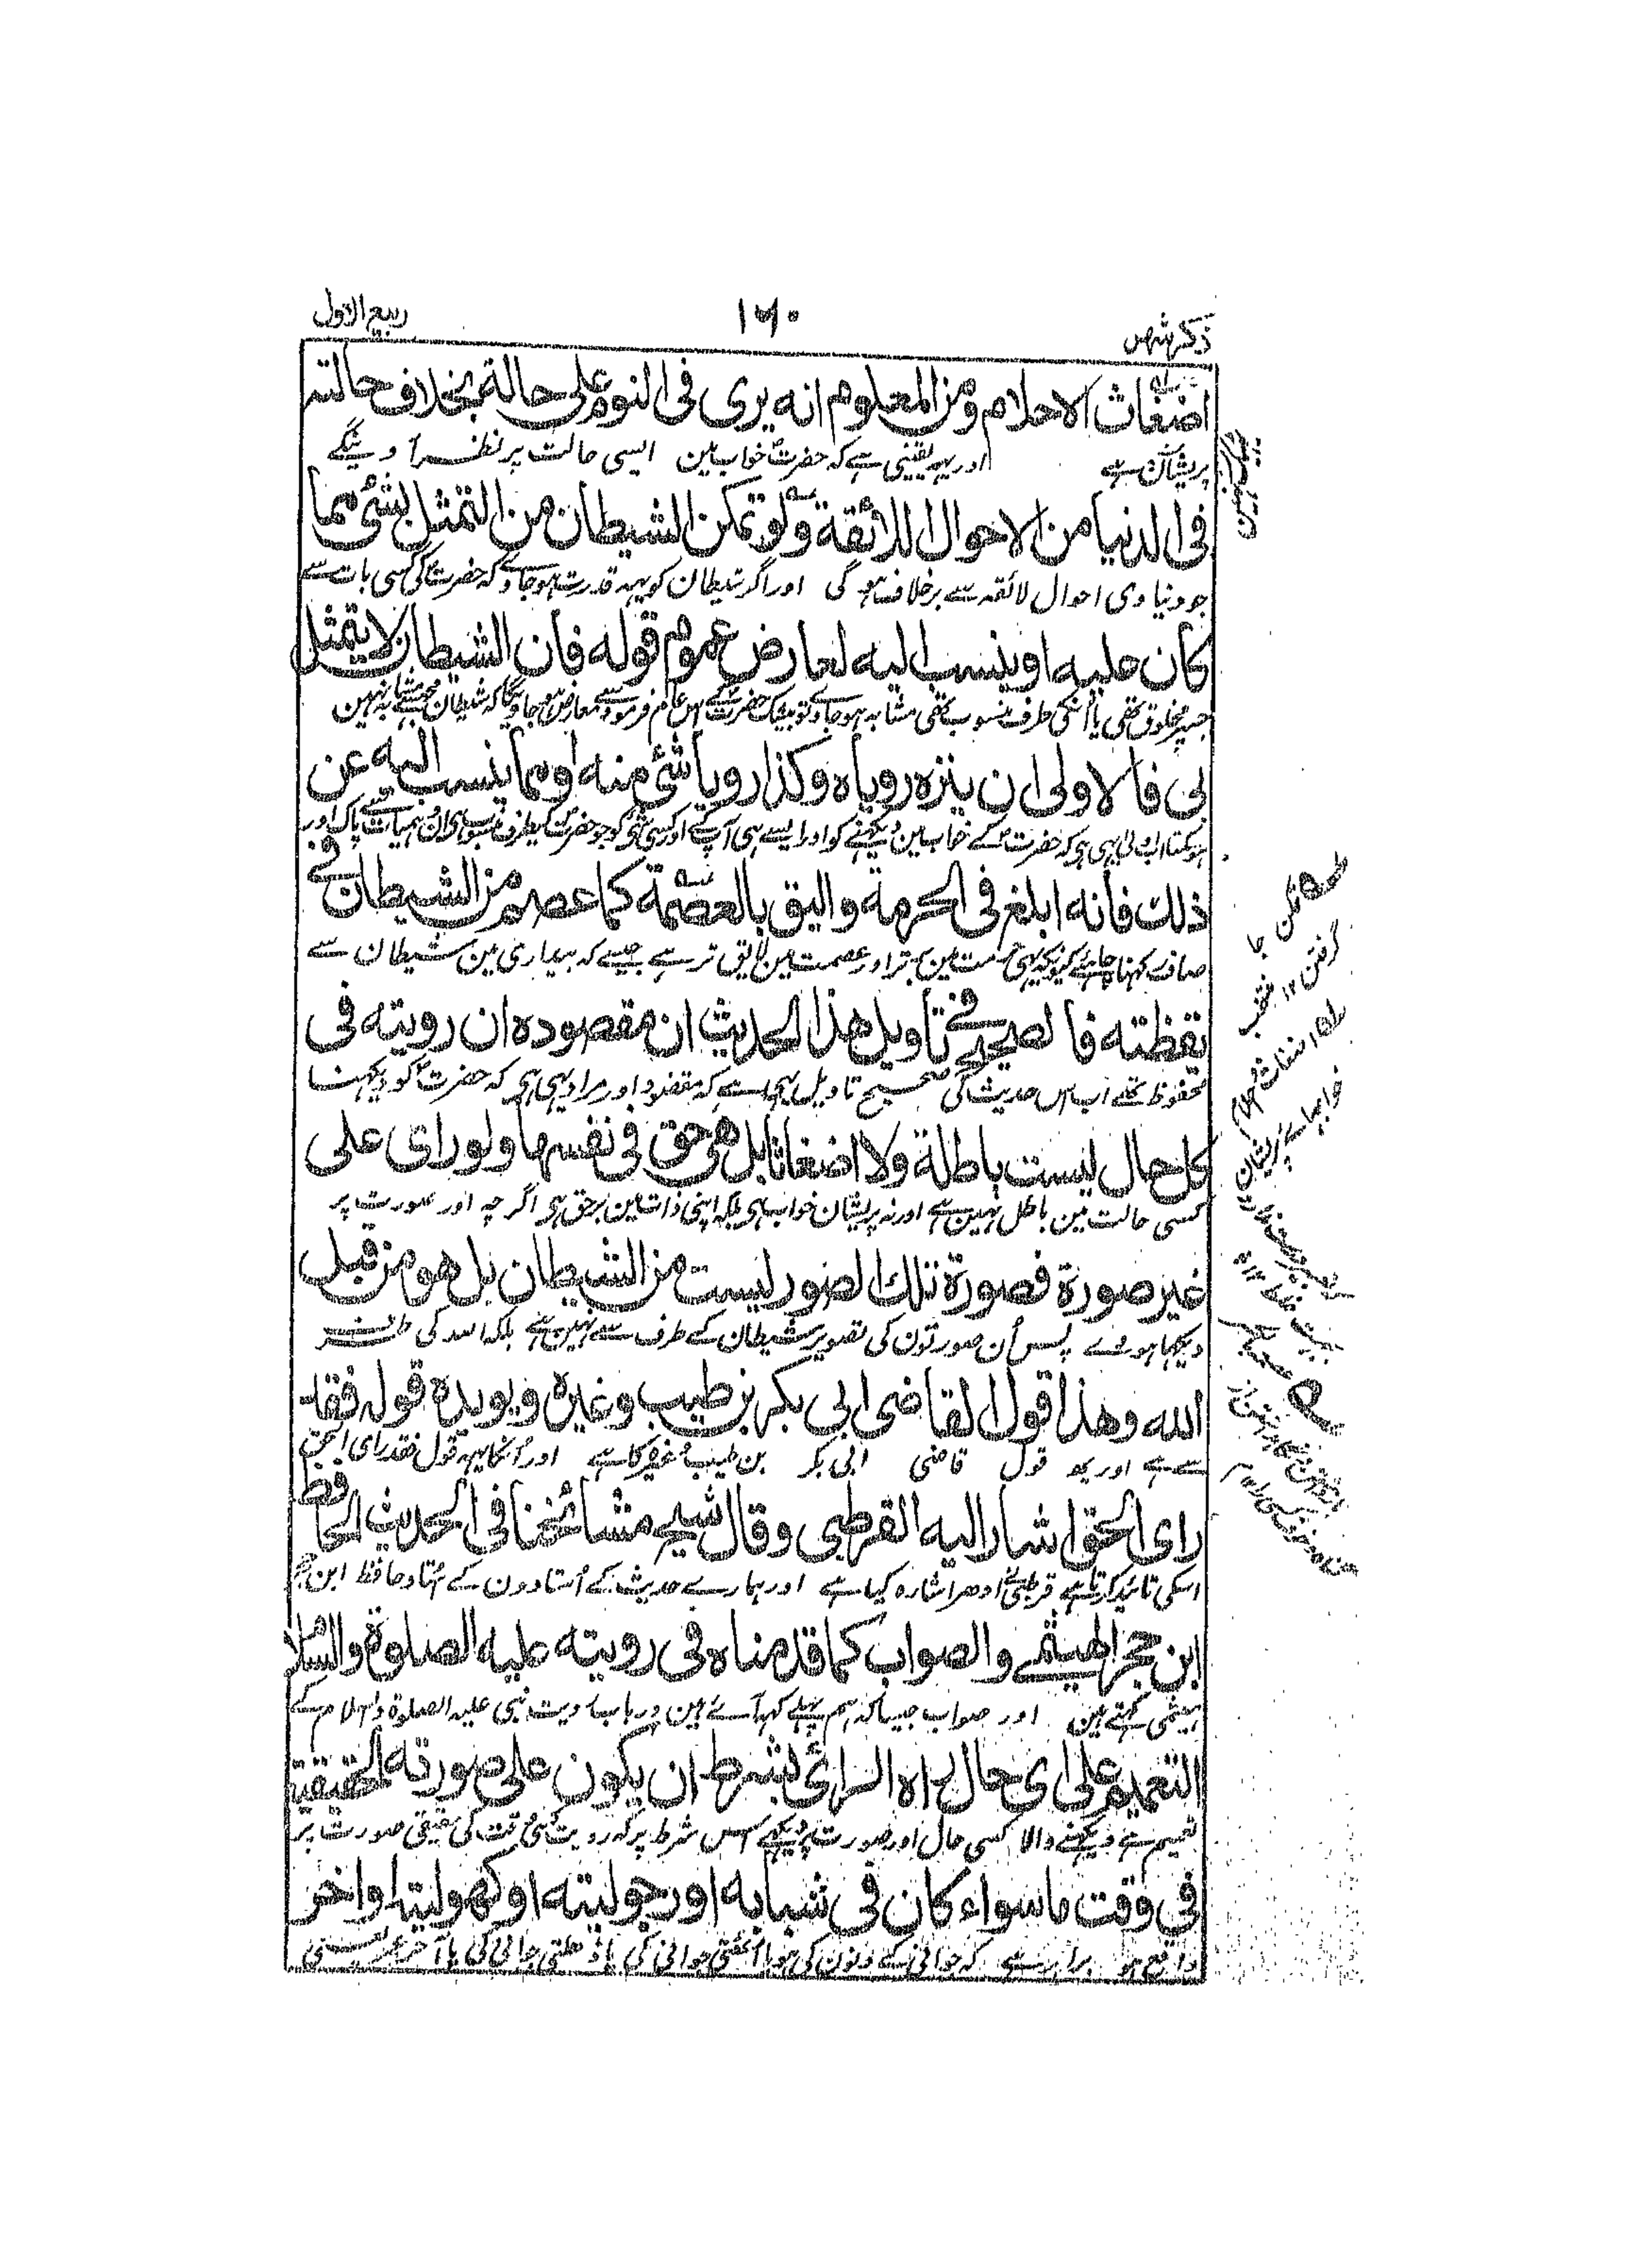 ذكر شهر
۱۶۰
ربيع الاول
اضغاث الاحلام ومن المعلوم انه يرى فى النوم على حالة بخلاف حالته
پریشان ہے اور یہہ یقینی ہے کہ حضرت خواب مین ایسی حالت پر نظر آوینگے
فى الدنيا من الاحوال اللائقة ولو تمكن الشيطان من التمثل بشئ مما
جو دنیاوی احوال لائقہ سے برخلاف ہوگی اور اگر شیطان کو یہہ قدرت ہو جاوے کہ حضرت کی کسی بات سے
كان عليه او ينسب اليه لعارض عموم قوله فان الشيطان لا يتمثل
تھی یا اُنکی طرف منسوب تھی مشابہ ہو جاوے تو بیشک حضرت کے اس عام فرمودے سے معارض ہو جاویگا کہ شیطان مجھسے مشابہ نہین
بى فالاولى ان ينزه روياه وكذا رويا شئ منه او مما ينسب اليه عن
ہو سکتا کہ حضرت کے خواب مین دیکہنے کو اور ایسے ہی آپ کے اور کسی شئ کو جو حضرت کیطرف منسوب ہو پاک اور
ذلك فانه ابلغ فى الحرمة واليق بالعصمة كما عصم من الشيطان فى
صاف کہنا چاہئے کیونکہ یہی حرمت مین برتر اور عصمت مین لایق تر ہے جیسے کہ بیداری مین شیطان سے
يقظته فالصحيح فى تأويل هذا الحديث ان مقصوده ان رويته فى
محفوظ تھے اب اس حدیث کی صحیح تاویل یہی ہے کہ مقصود اور مراد یہی ہی کہ حضرت کو دیکہنا
كل حال ليست باطلة ولا اضغاثا بل هى حق فى نفسها ولو راى على
کسی حالت مین باطل نہین ہے اور نہ پریشان خواب ہی بلکہ اپنی ذات مین برحق ہی اگر چہ اور صورت پر
غير صورة فصورة تلك الصور ليست من الشيطان بل هو من قبل
دیکہا ہووے پس اُن صورتون کی تصویر شیطان کے طرف سے نہین ہے بلکہ اللہ کی طرف
الله وهذا قول القاضى ابى بكر بن طيب وغيره ويويده قوله فقد
سے ہے اور یہ قول قاضی ابی بکر بن طیب وغیرہ کا ہے اور اُنکا یہہ قول فقد رای الحق
راى الحق اشار اليه القرطبى وقال شيخ مشائخنا فى الحديث الحافظ
اسکی تائید کرتا ہے قرطبی نے ادھر اشارہ کیا ہے اور ہمارے حدیث کے اُستادون کے اُستاد حافظ ابن حجر
ابن حجر الهيثمى والصواب كما قدمناه فى رويته عليه الصلوة والسلام
ہیثمی کہتے ہین اور صواب جیسا کہ ہم پہلے کہہ آئے ہین در باب رویت نبی علیہ الصلوۃ والسلام کے
التعميم على اى حال راه الرائى بشرط ان يكون على صورته الحقيقية
تعمیم ہے دیکہنے والا کسی حال اور صورت پر دیکہے اس شرط پر کہ رویت کسی وقت کی حقیقی صورت پر
فى وقت ما سواء كان فى شبابه او رجوليته او كهوليته او اخر
واقع ہو برابر ہے کہ جوانی کے دنون کی ہو یا اُٹھتی جوانی کی یا ڈھلتی جوانی کی یا آخر عمر
تمکن جا
گرفتن ۱۲ منتخب
اضغاث احلام
خوابہائے پریشان